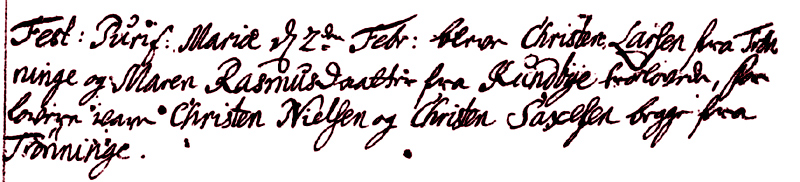 Fest: Purif: Mariæ d 2den Febr: bleve Christen Larsen fra Trøn
ninge og Maren Rasmusdaatter fra Kundbye trolovede, for
lovere vare Christen Nielsen og Christen Saxesen begge fra
Trønninge.